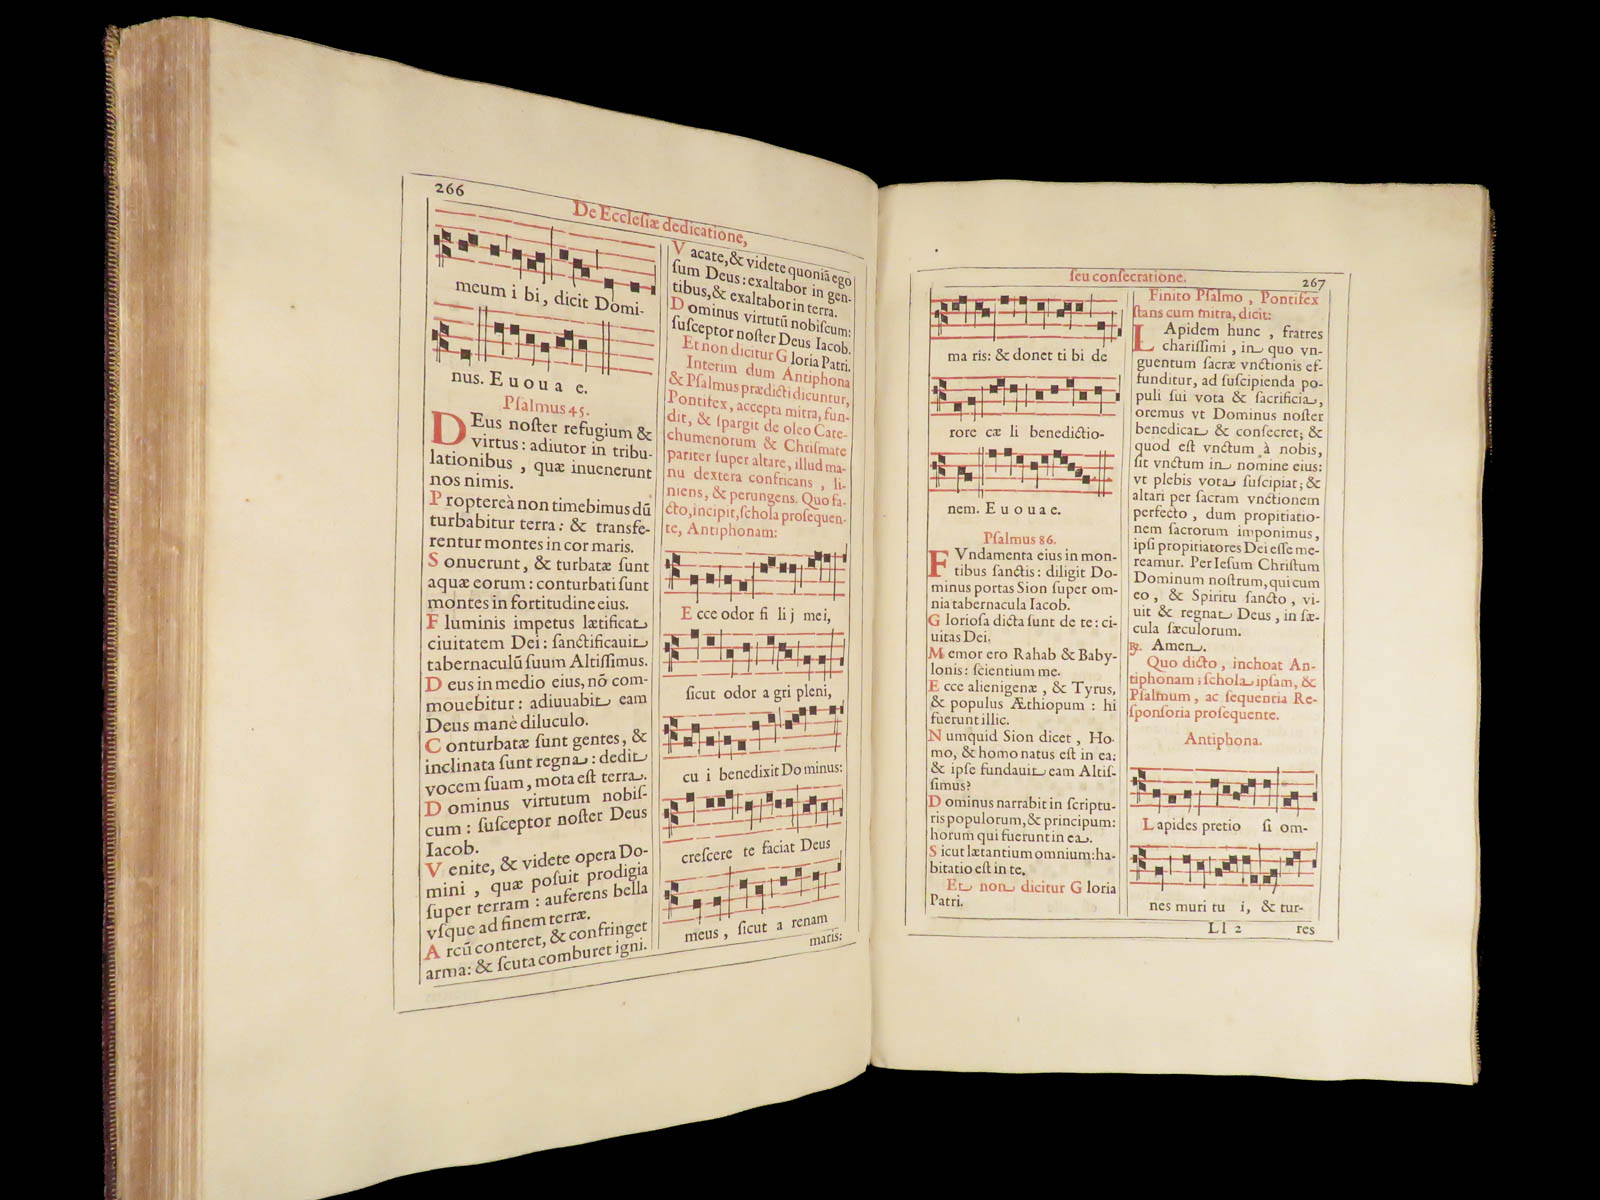 266
De Ecclesiæ dedicatione,
meum i bi, dicit Domi-
nus. E u o u a e.
Psalmus 45.
DEus noster refugium &
virtus: adiutor in tribu-
lationibus, quæ inuenerunt
nos nimis.
Proptereà non timebimus dũ
turbabitur terra: & transfe-
rentur montes in cor maris.
Sonuerunt, & turbatæ sunt
aquæ eorum: conturbati sunt
montes in fortitudine eius.
Fluminis impetus lætificat
ciuitatem Dei: sanctificauit
tabernaculũ suum Altissimus.
Deus in medio eius, nõ com-
mouebitur: adiuuabit eam
Deus manè diluculo.
Conturbatæ sunt gentes, &
inclinata sunt regna: dedit
vocem suam, mota est terra.
Dominus virtutum nobis-
cum: susceptor noster Deus
Iacob.
Venite, & videte opera Do-
mini, quæ posuit prodigia
super terram: auferens bella
vsque ad finem terræ.
Arcũ conteret, & confringet
arma: & scuta comburet igni.
Vacate, & videte quoniã ego
sum Deus: exaltabor in gen-
tibus, & exaltabor in terra.
Dominus virtutũ nobiscum:
susceptor noster Deus Iacob.
Et non dicitur Gloria Patri.
Interim dum Antiphona
& Psalmus prædicti dicuntur,
Pontifex, accepta mitra, fun-
dit, & spargit de oleo Cate-
chumenorum & Chrismate
pariter super altare, illud ma-
nu dextera confricans, li-
niens, & perungens. Quo fa-
cto, incipit, schola prosequen-
te, Antiphonam:
Ecce odor fi li j mei,
sicut odor a gri pleni,
cu i benedixit Do minus:
crescere te faciat Deus
meus, sicut a renam
maris:
seu consecratione.
267
ma ris: & donet ti bi de
rore cæ li benedictio-
nem. E u o u a e.
Psalmus 86.
FVndamenta eius in mon-
tibus sanctis: diligit Do-
minus portas Sion super om-
nia tabernacula Iacob.
Gloriosa dicta sunt de te: ci-
uitas Dei.
Memor ero Rahab & Baby-
lonis: scientium me.
Ecce alienigenæ, & Tyrus,
& populus Æthiopum: hi
fuerunt illic.
Numquid Sion dicet, Ho-
mo, & homo natus est in ea:
& ipse fundauit eam Altis-
simus?
Dominus narrabit in scriptu-
ris populorum, & principum:
horum qui fuerunt in ea.
Sicut lætantium omnium: ha-
bitatio est in te.
Et non dicitur Gloria
Patri.
Finito Psalmo, Pontifex
stans cum mitra, dicit:
LApidem hunc, fratres
charissimi, in quo vn-
guentum sacræ vnctionis ef-
funditur, ad suscipienda po-
puli sui vota & sacrificia,
oremus vt Dominus noster
benedicat & consecret; &
quod est vnctum à nobis,
sit vnctum in nomine eius:
vt plebis vota suscipiat; &
altari per sacram vnctionem
perfecto, dum propitiatio-
nem sacrorum imponimus,
ipsi propitiatores Dei esse me-
reamur. Per Iesum Christum
Dominum nostrum, qui cum
eo, & Spiritu sancto, vi-
uit & regnat Deus, in sæ-
cula sæculorum.
℟. Amen.
Quo dicto, inchoat An-
tiphonam; schola ipsam, &
Psalmum, ac sequentia Re-
sponsoria prosequente.
Antiphona.
Lapides pretio si om-
nes muri tu i, & tur-
Ll 2
res